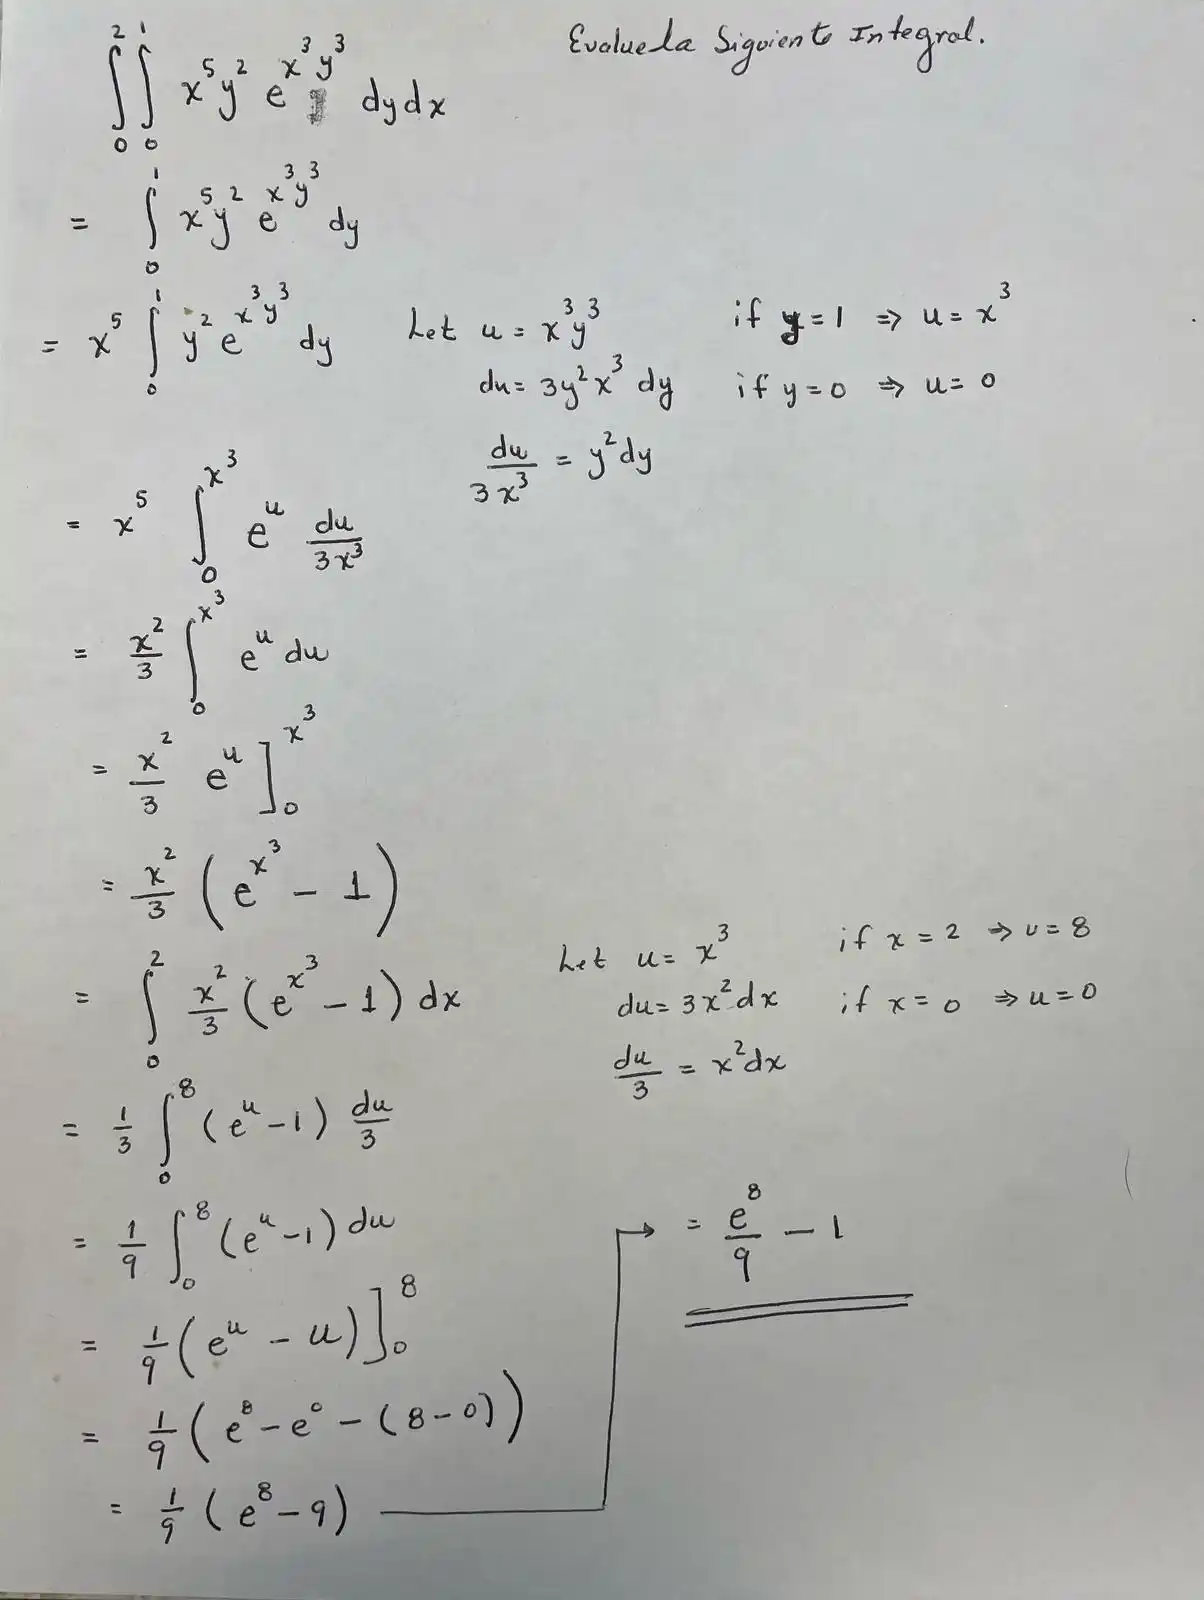 ∫₀² ∫₀¹ x⁵y² e^(x³y³) dy dx
Evalue la Siguiente Integral.
= ∫₀¹ x⁵y² e^(x³y³) dy
= x⁵ ∫₀¹ y² e^(x³y³) dy
Let u = x³y³
if y = 1 ⇒ u = x³
du = 3y²x³ dy
if y = 0 ⇒ u = 0
du/3x³ = y² dy
= x⁵ ∫₀^(x³) e^u du/3x³
= x²/3 ∫₀^(x³) e^u du
= x²/3 e^u ]₀^(x³)
= x²/3 (e^(x³) - 1)
= ∫₀² x²/3 (e^(x³) - 1) dx
Let u = x³
if x = 2 ⇒ u = 8
du = 3x² dx
if x = 0 ⇒ u = 0
du/3 = x² dx
= 1/3 ∫₀⁸ (e^u - 1) du/3
= 1/9 ∫₀⁸ (e^u - 1) du
= 1/9 (e^u - u) ]₀⁸
= 1/9 (e⁸ - e⁰ - (8 - 0))
= 1/9 (e⁸ - 9)
→ = e⁸/9 - 1